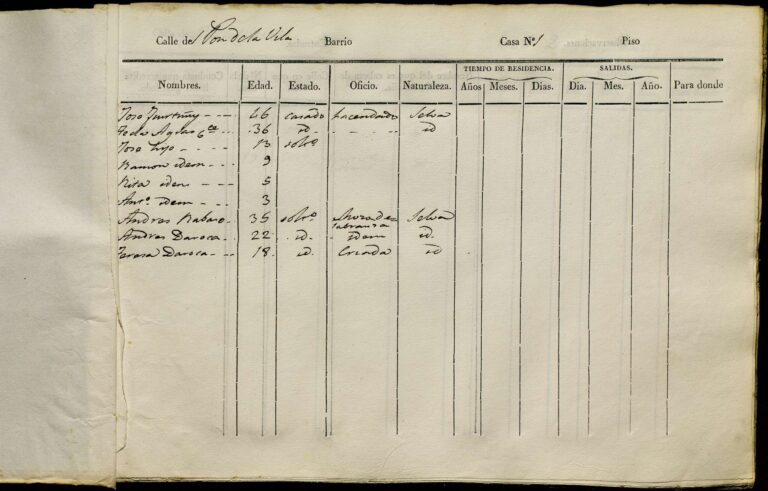 Calle de Pon de la Vila Barrio Casa Nº 1 Piso
TIEMPO DE RESIDENCIA. SALIDAS.
Nombres. Edad. Estado. Oficio. Naturaleza. Años Meses. Dias. Dia. Mes. Año. Para donde
Jose 46 casado hacendado Selva
Tecla 36 id. id
Jose hijo 13 solto
Ramon idem 9
Rita idem 5
Anto. idem 3
Andres 35 solto Mozo de labranza Selva
Andres Daroca 22 id. idem id.
Teresa Daroca 18 id. Criada id